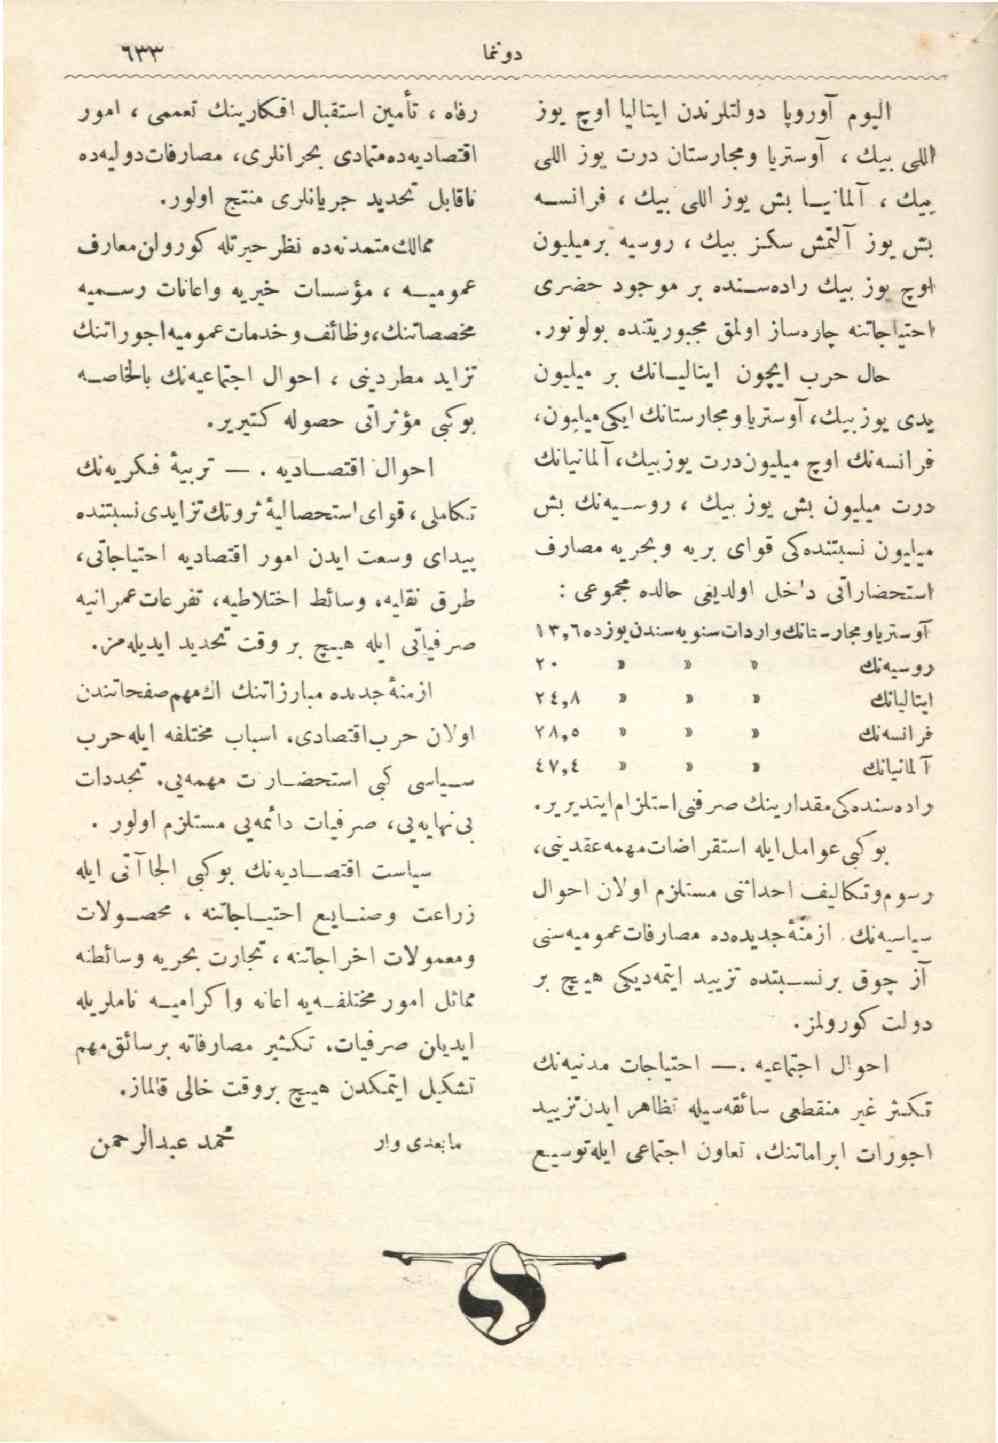 دوننما ٦٣٣
اليوم آوروپا دولتلرندن ايتاليا اوچ يوز
اللی بيك ، آوستريا ومجارستان درت يوز اللی
بيك ، آلمانيــا بش يوز اللی بيك ، فرانســه
بش يوز آلتمش سكز بيك ، روسيه برميليون
اوچ يوز بيك راده‌ســنده بر موجود حضری
احتياجاتنه چاره‌ساز اولمق مجبوريتنده بولونور.
حال حرب ايچون ايتاليــانك بر ميليون
يدی يوز بيك، آوستريا ومجارستانك ايكی ميليون،
فرانسه‌نك اوچ ميليون درت يوز بيك، آلمانيانك
درت ميليون بش يوز بيك ، روســيه‌نك بش
ميليون نسبتنده‌كی قوای بريه وبحريه مصارف
استحضاراتی داخل اولديغی حالده مجموعی :
آوستريا ومجارستانك واردات سنويه‌سندن يوزده ١٣,٦
روسيه‌نك » » » ٢٠
ايتاليانك » » » ٢٤,٨
فرانسه‌نك » » » ٢٨,٥
آلمانيانك » » » ٤٧,٤
راده‌سنده‌كی مقدارينك صرفنی استلزام ايتديرير.
بوكبی عوامل ايله استقراضات مهمه عقدينی،
رسوم وتكاليف احداثنی مستلزم اولان احوال
سياسيه‌نك ازمنهٔ جديده‌ده مصارفات عموميه‌سنی
آز چوق برنســبتده تزييد ايتمه‌ديكی هيچ بر
دولت كورولمز.
احوال اجتماعيه . — احتياجات مدنيه‌نك
تكثر غير منقطعی سائقه‌سيله تظاهر ايدن تزييد
اجورات ابراماتنك، تعاون اجتماعی ايله توسيع
رفاه ، تأمين استقبال افكارينك تعممی ، امور
اقتصاديه‌ده متمادی بحرانلری، مصارفات دوليه‌ده
ناقابل تحديد جريانلری منتج اولور.
ممالك متمدنه‌ده نظر حيرتله كورولن معارف
عموميــه ، مؤسسات خيريه واعانات رســميه
مخصصاتنك، وظائف وخدمات عموميه اجوراتنك
تزايد مطردينی ، احوال اجتماعيه‌نك بالخاصــه
بوكبی مؤثراتی حصوله كتيرير.
احوال اقتصــاديه . — تربيهٔ فكريه‌نك
تكاملی ، قوای استحصاليهٔ ثروتك تزايدی نسبتنده
پيدای وسعت ايدن امور اقتصاديه احتياجاتی،
طرق نقليه، وسائط اختلاطيه، تفرعات عمرانيه
صرفياتی ايله هيچ بر وقت تحديد ايديله‌مز.
ازمنهٔ جديده مبارزاتنك اك مهم صفحاتندن
اولان حرب اقتصادی، اسباب مختلفه ايله حرب
ســياسی كبی استحضــارات مهمه‌يی، تجددات
بی‌نهايه‌يی، صرفيات دائمه‌يی مستلزم اولور .
سياست اقتصــاديه‌نك بوكبی الجاآتی ايله
زراعت وصنــايع احتيــاجاتنه ، محصــولات
ومعمولات اخراجاتنه ، تجارت بحريه وسائطنه
مماثل امور مختلفــه‌يه اعانه واكراميــه ناملريله
ايديلن صرفيات، تكثير مصارفاته برسائق مهم
تشكيل ايتمكدن هيچ بروقت خالی قالماز.
مابعدی وار محمد عبدالرحمن